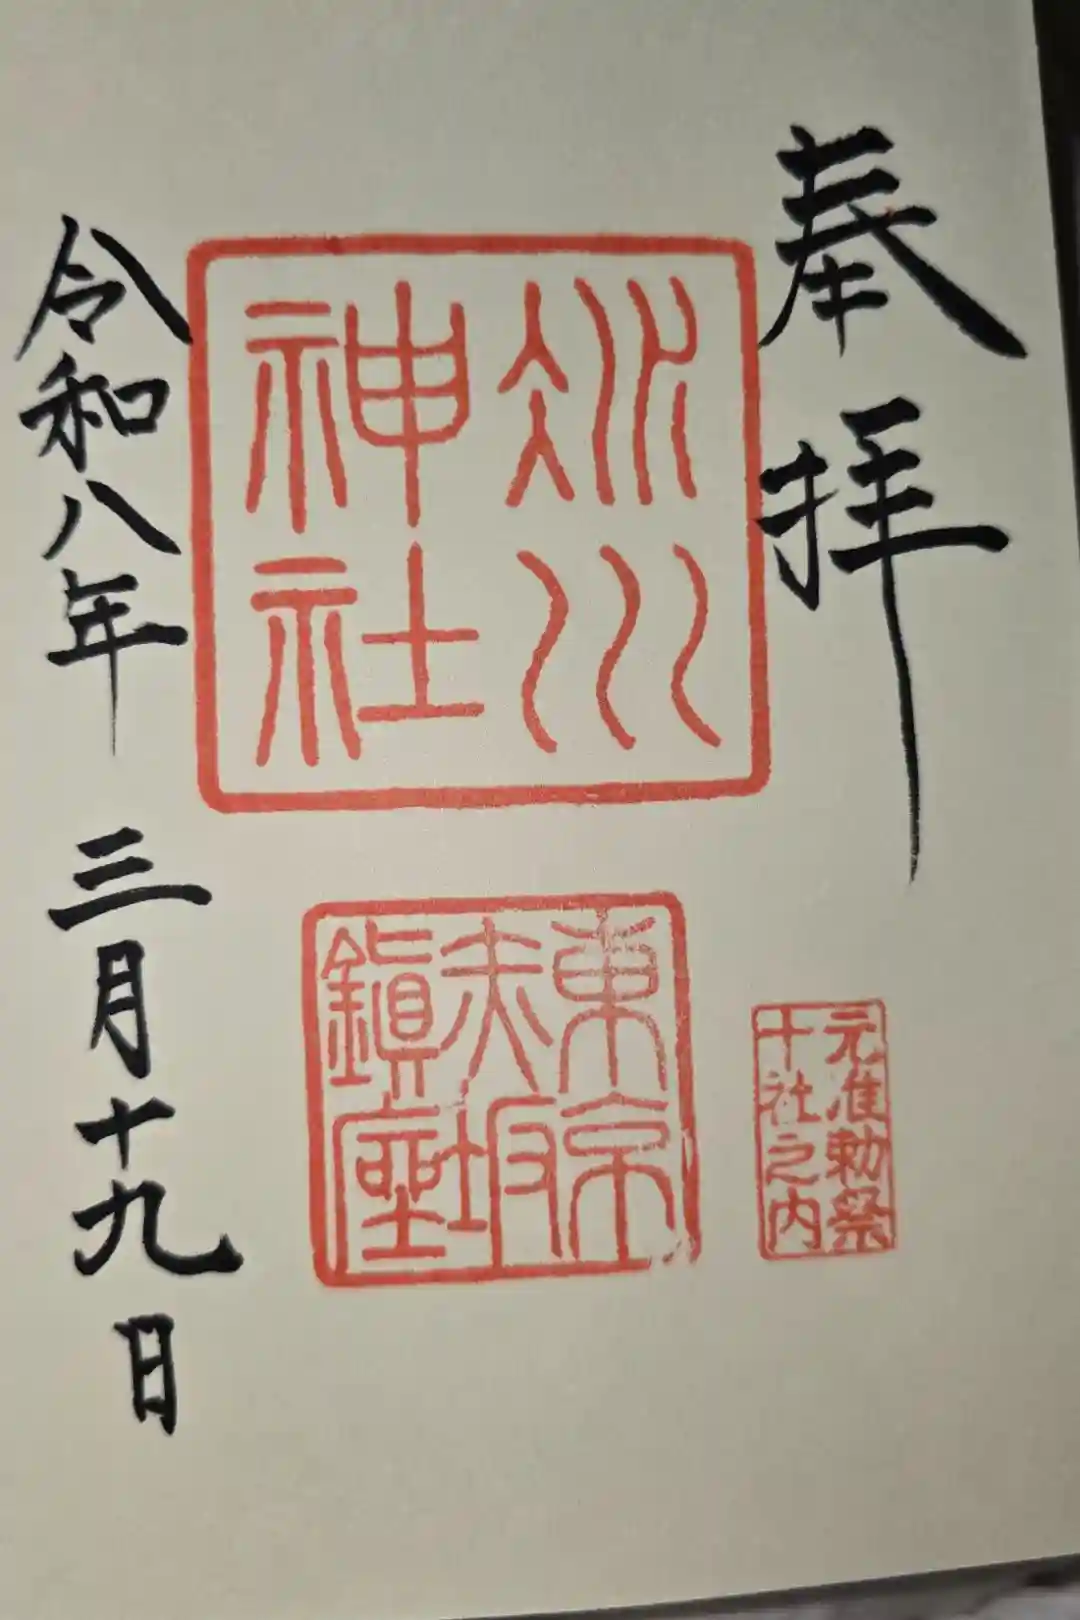 奉拝
氷川
神社
東京
赤坂
鎮座
元准勅祭
十社之内
令和八年 三月十九日